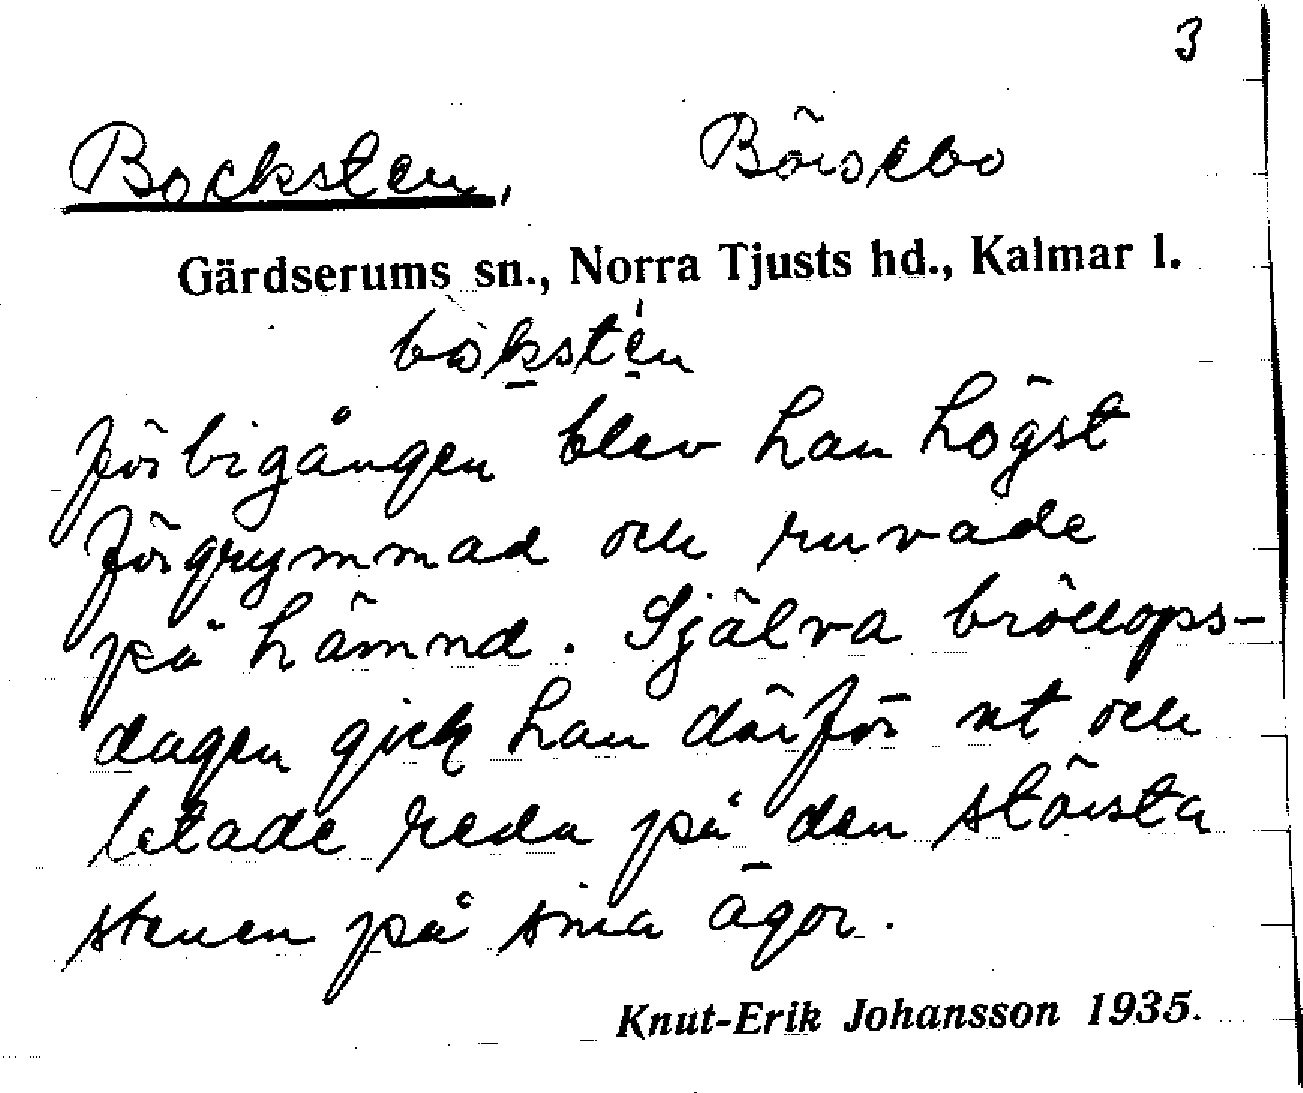 3
Bocksten, Börsebo
Gärdserums sn., Norra Tjusts hd., Kalmar l.
bòkstén
förbigången blev han högst
förgrymmad och ruvade
på hämnd. Själva bröllops-
dagen gick han därför ut och
letade reda på den största
stenen på sina ägor.
Knut-Erik Johansson 1935.